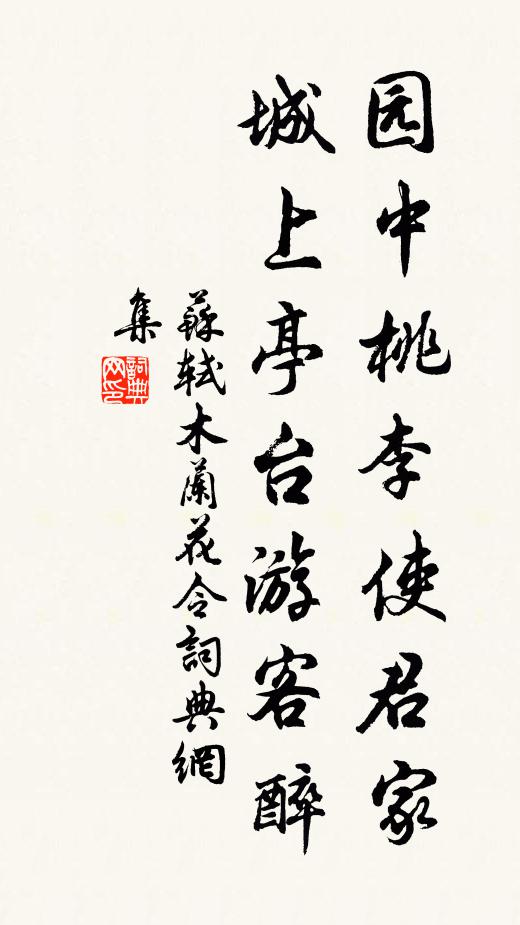 园中桃李使君家
城上亭台游客醉
蘇軾木蘭花令詞典網
集
詞典网印